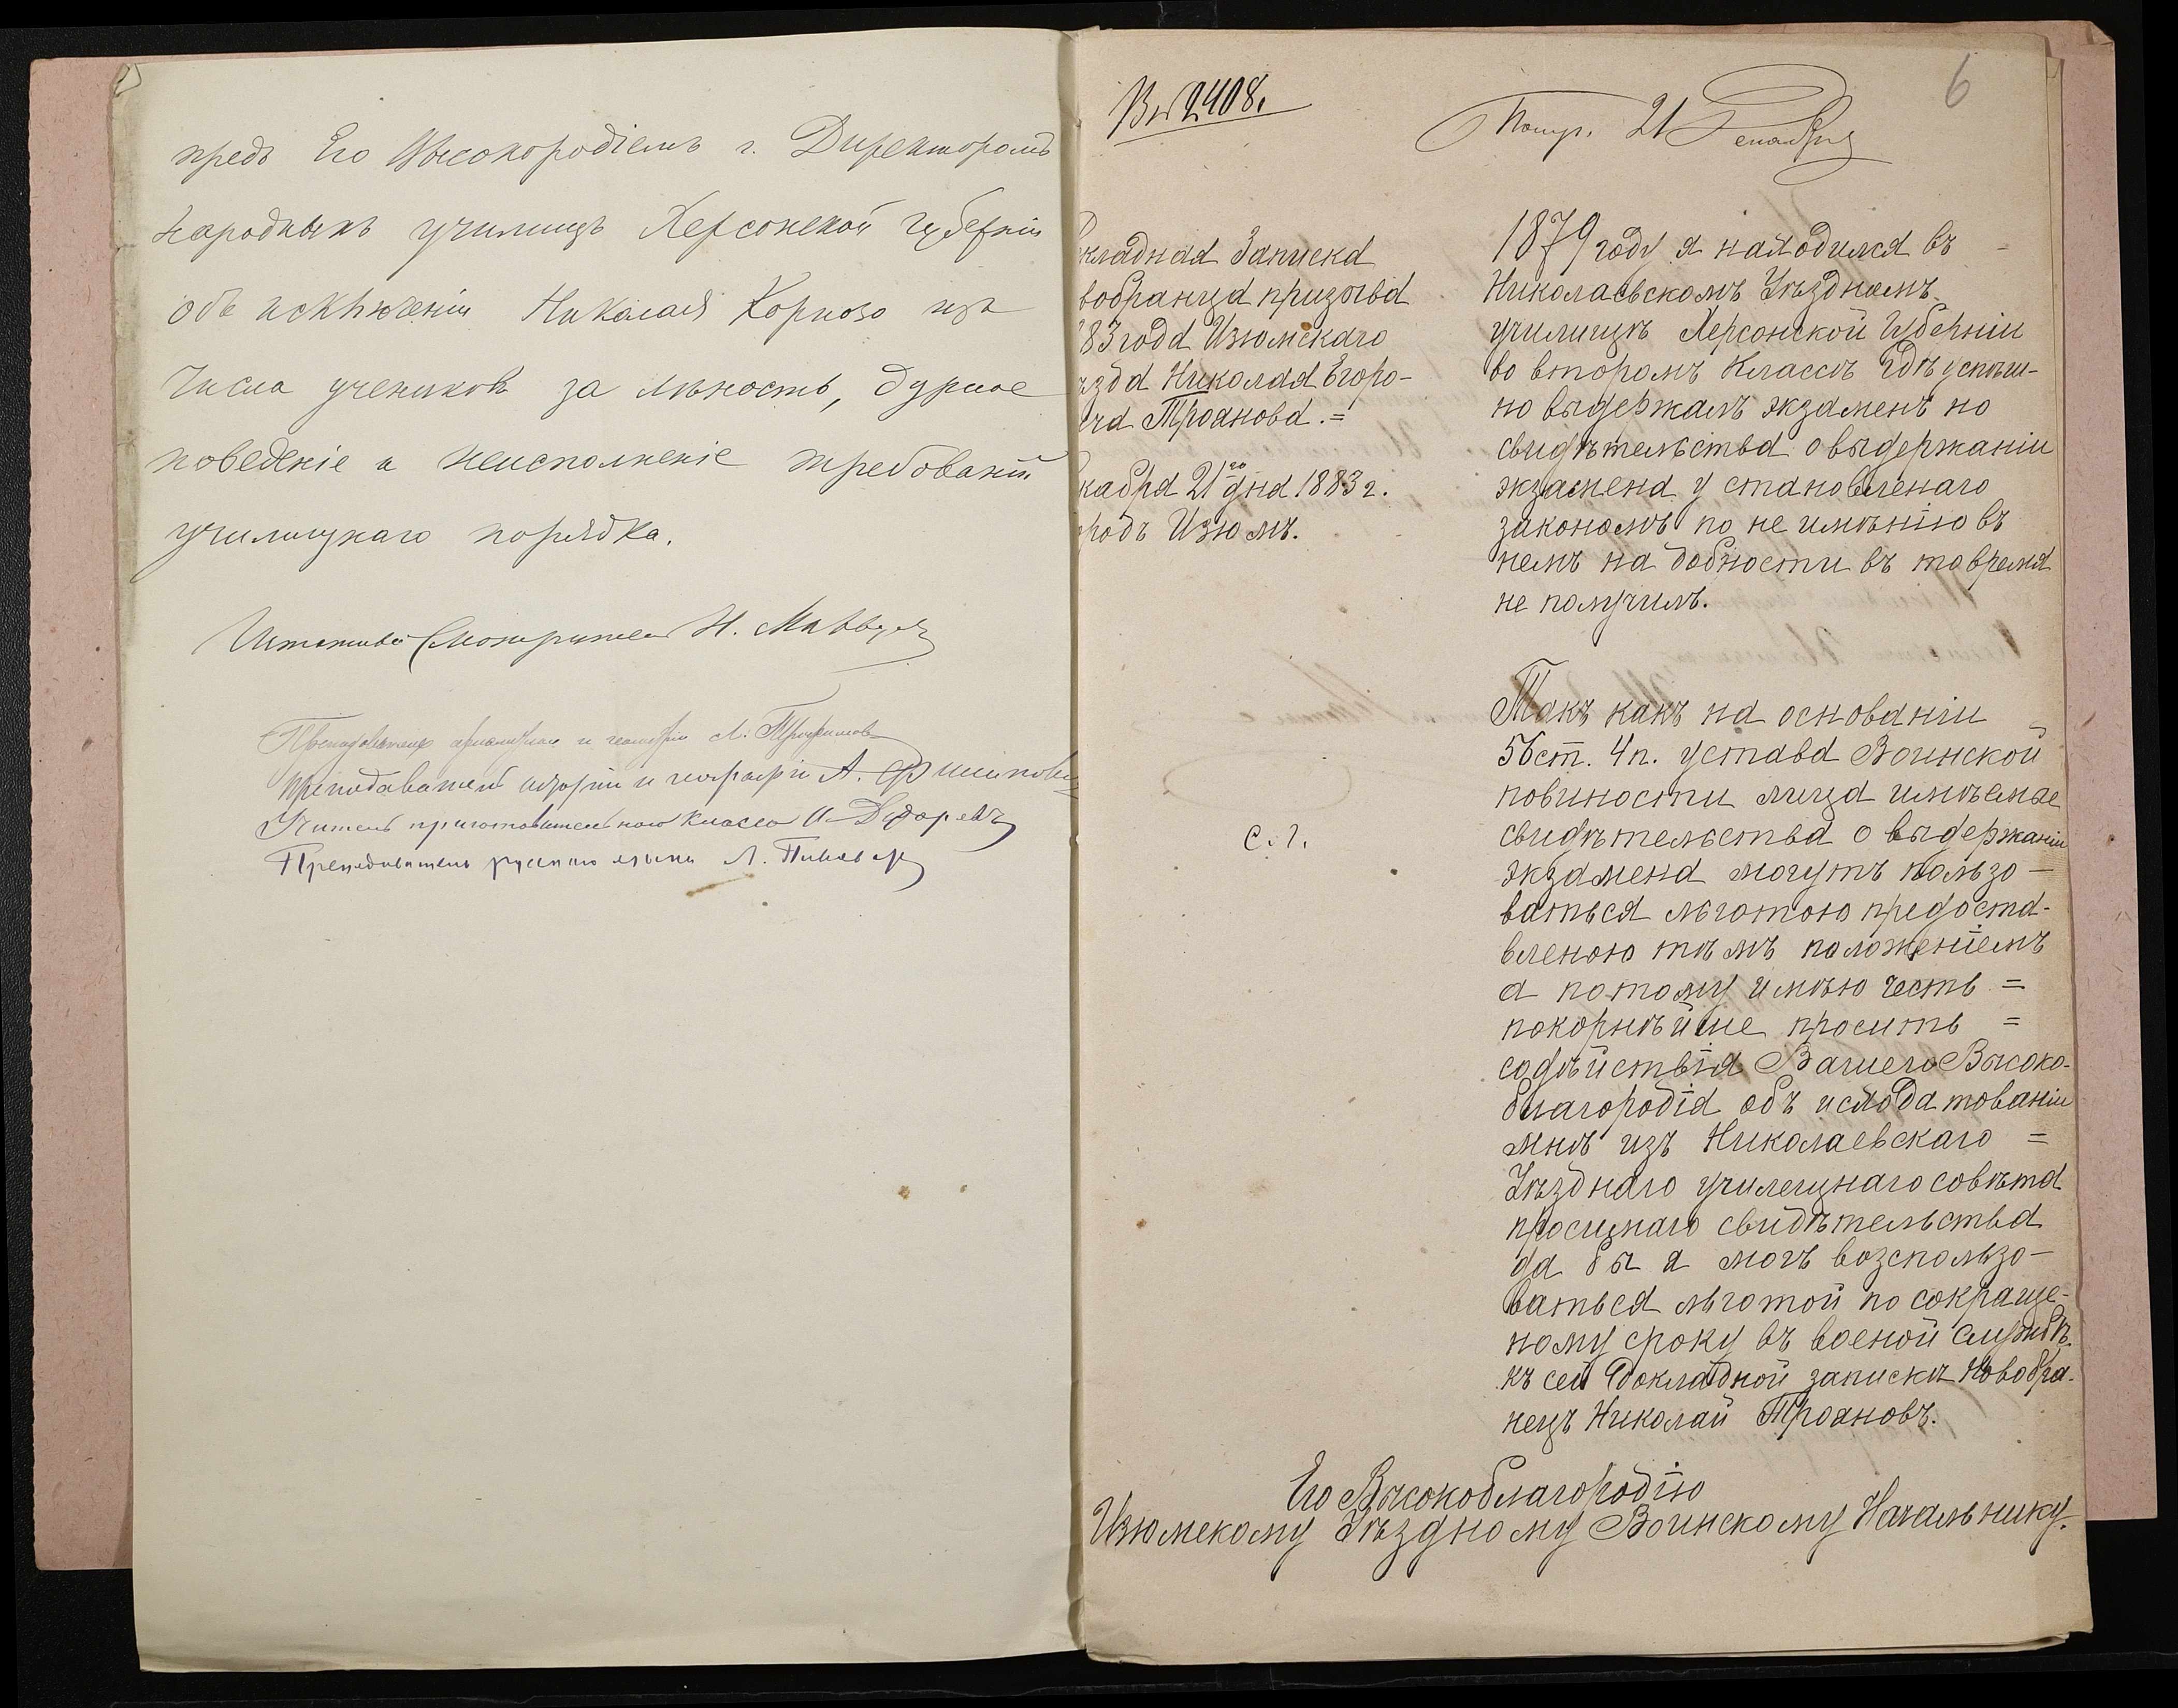 предъ Его Высокородіемъ г. Директоромъ
народныхъ училищъ Херсонской губерніи
объ исключеніи Николая Корново изъ
числа учениковъ за лѣность, дурное
поведеніе и неисполненіе требованій
училищнаго порядка.
Штатный Смотритель Н.
Преподаватель ариѳметики и геометріи Л. Трофимовъ
Преподаватель исторіи и географіи А.
Учитель приготовительнаго класса И. Дударевъ
Преподаватель русскаго языка Л.
6
2408.
Получ. 21 Декабря
кладная Записка
вобранца призыва
83 года Изюмскаго
ѣзда Николая Егоро-
ича Троянова.=
кабря 21го дня 1883 г.
родъ Изюмъ.
1879 году я находился въ
Николаевскомъ Уѣздномъ
училищѣ Херсонской Губерніи
во второмъ Классѣ гдѣ успѣш-
но выдержалъ экзаменъ но
свидѣтельства о выдержаніи
экзамена установленаго
закономъ по не имѣнію въ
немъ надобности въ то время
не получилъ.
Такъ какъ на основаніи
56 ст. 4 п. устава Воинской
повиности лица имѣемые
свидѣтельства о выдержаніи
экзамена могутъ пользо-
ваться льготою предоста-
вленою тѣмъ положеніемъ
а потому имѣю честь =
покорнѣйше просить =
содѣйствія Вашего Высоко-
благородія объ исходатованіи
мнѣ изъ Николаевскаго =
Уѣзднаго училещнаго совѣта
просимаго свидѣтельства
да бы я могъ возспользо-
ваться льготой по сокраще-
ному сроку въ военой службѣ.
къ сей докладной запискѣ Новобра-
нецъ Николай Трояновъ.
с. г.
Его Высокоблагородію
Изюмскому Уѣздному Воинскому Начальнику.